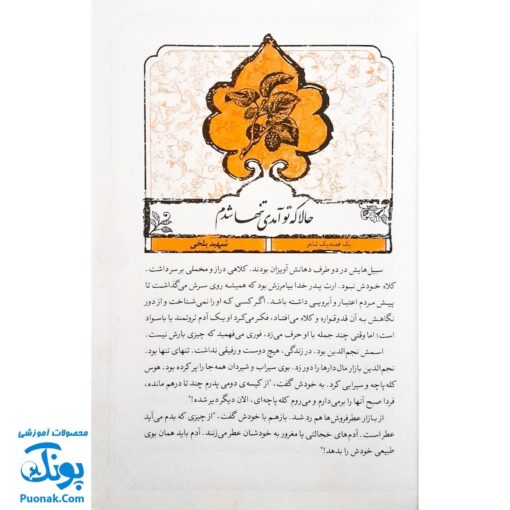 حالا که تو آمدی تنها شدم
یک قصه یک شاعر
شهید بلخی
سبیل‌هایش در دو طرف دهانش آویزان بودند. کلاهی دراز و مخملی بر سر داشت.
کلاه خودش نبود. ارث پدر خدا بیامرزش بود که همیشه روی سرش می‌گذاشت تا
پیش مردم اعتبار و آبرویی داشته باشد. اگر کسی که او را نمی‌شناخت و از دور
نگاهش به آن قد و قواره و کلاه می‌افتاد، فکر می‌کرد او یک آدم ثروتمند یا باسواد
است؛ اما وقتی چند جمله با او حرف می‌زد، فوری می‌فهمید که چیزی بارش نیست.
اسمش نجم‌الدین بود. در زندگی، هیچ دوست و رفیقی نداشت، تنهای تنها بود.
نجم‌الدین بازار مال‌دارها را دور زد. بوی سیراب و شیردان همه جا را پر کرده بود. هوس
کله پاچه و سیرابی کرد. به خودش گفت، "از کیسه‌ی دومی پدرم چند تا درهم مانده،
فردا صبح آنها را برمی‌دارم و می‌روم کله پاچه‌ای، الان دیگر دیر شده!"
از بازار عطرفروش‌ها هم رد شد. باز هم با خودش گفت، "از چیزی که بدم می‌آید
عطر است. آدم‌های خجالتی یا مغرور به خودشان عطر می‌زنند. آدم باید همان بوی
طبیعی خودش را بدهد!"
محصولات آموزشی
پونک
Puonak.Com